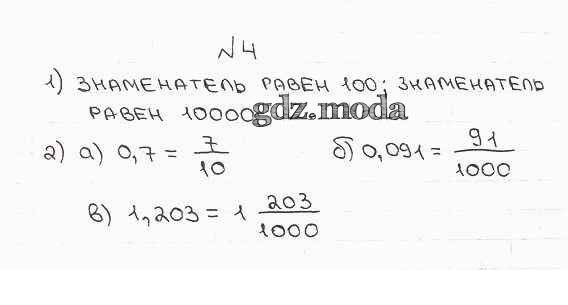 №4
1) ЗНАМЕНАТЕЛЬ РАВЕН 100; ЗНАМЕНАТЕЛЬ
РАВЕН 10000 gdz.moda
2) а) 0,7 = 7/10 б) 0,091 = 91/1000
в) 1,203 = 1 203/1000